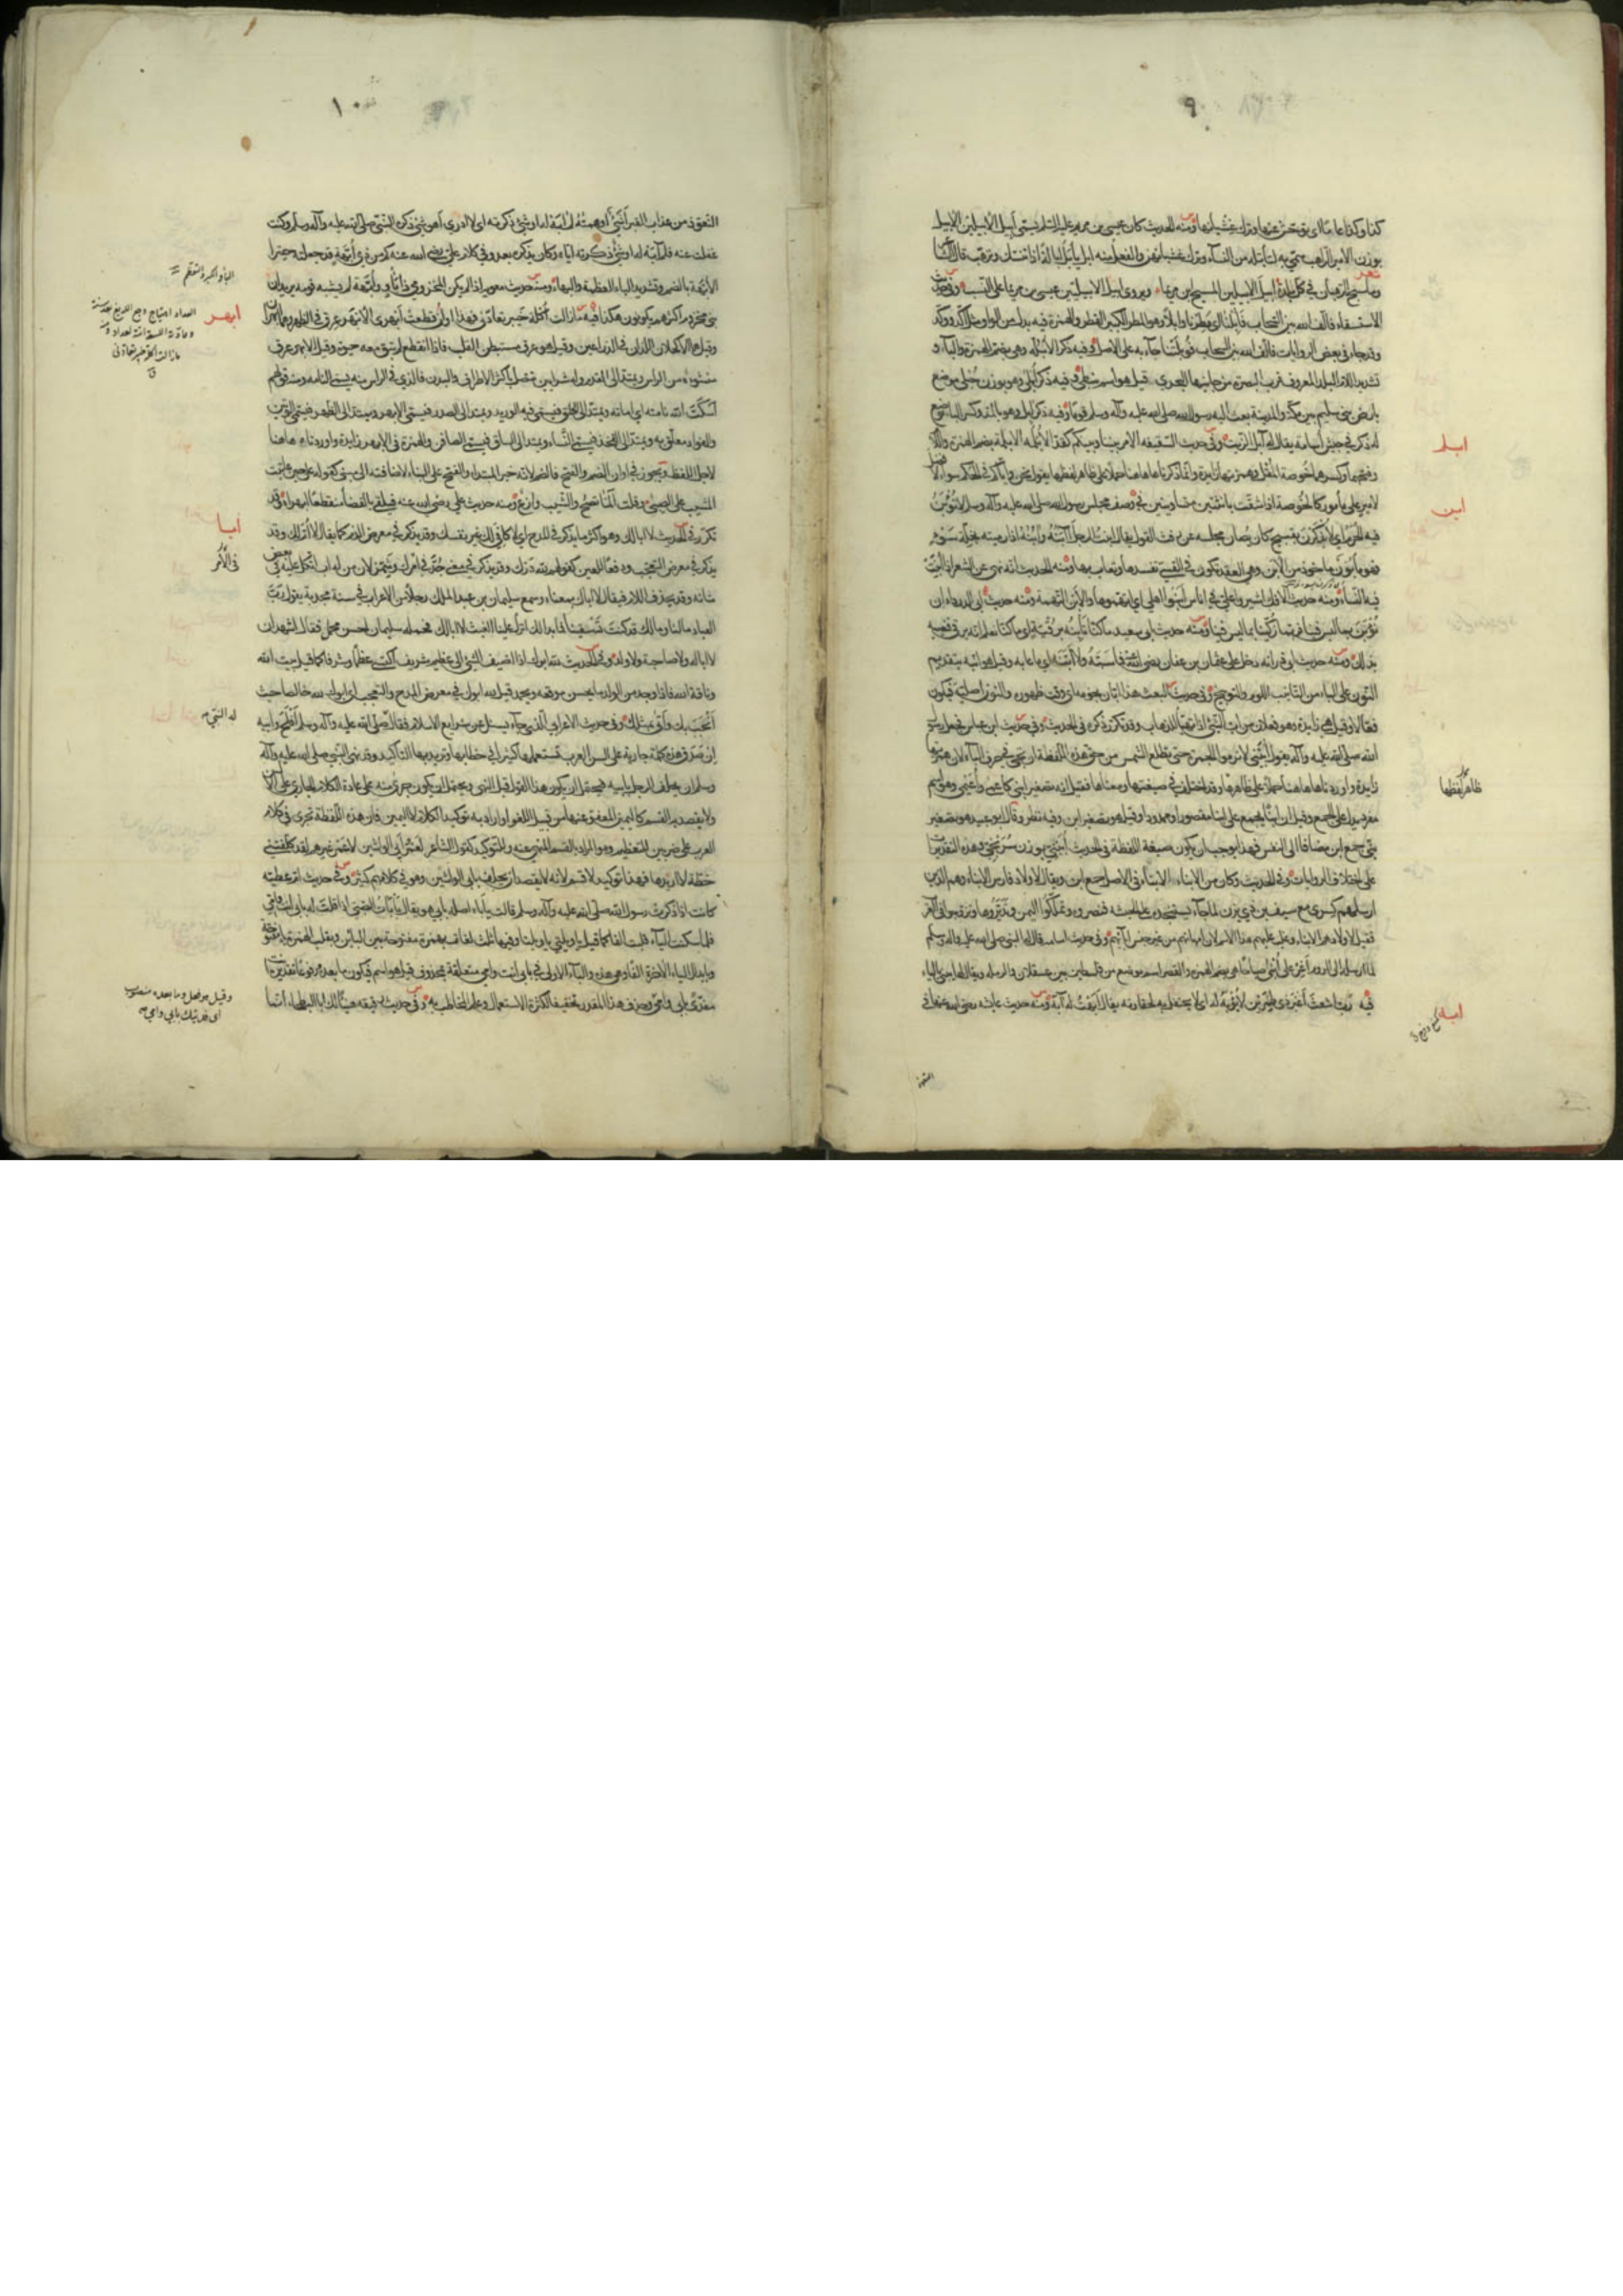 ٩
كذا وكذا عاما اى توحش عنها وترك غشيانها ومنه الحديث كان عيسى بن مريم عليه السلام يسمى ابيل الابيلين الابيل
بوزن الامير الراهب سمى به لتأبله من النساء وترك غشيانهن والفعل منه ابل يأبل ابالة اذا تنسك وترهب قال الشاعر
شعر
وما سبح الرهبان فى كل بلدة ابيل الابيلين المسيح بن مريما ويروى ابيل الابيليين عيسى بن مريما على النسب وفى حديث
الاستسقاء فألف الله بين السحاب فأبلنا اى مطرنا وابلا وهو المطر الكثير القطر والهمزة فيه بدل من الواو مثل اكد ووكد
وقد جاء فى بعض الروايات فألف الله بين السحاب فوبلتنا جاء به على الاصل وفيه ذكر الابلة وهى بضم الهمزة والباء و
تشديد اللام البلد المعروف قرب البصرة من جانبها البحرى قيل هو اسم نبطى وفيه ذكر ابلى وهو بوزن حبلى موضع
بارض بنى سليم بين مكة والمدينة بعث اليه رسول الله صلى الله عليه وآله وسلم قوما وفيه ذكر آبل وهو بالمد وكسر الباء موضع
ابلم
له ذكر فى جيش اسامة يقال له آبل الزيت وفى حديث السقيفة الامر بيننا وبينكم كقد الابلمة الابلمة بضم الهمزة واللام
وفتحهما وكسرهما خوصة المقل وهمزتها زائدة وانما ذكرناها هاهنا حملا على ظاهر لفظها يقول نحن واياكم فى الحكم سواء لا فضل
ابن
لامير على مأمور كالخوصة اذا شقت باثنتين متساويتين فى وصف مجلس رسول الله صلى الله عليه وآله وسلم لا تؤبن
فيه الحرم اى لا يذكرن بقبيح كان يصان مجلسه عن رفث القول يقال ابنت الرجل آبنه وآبنه اذا رميته بخلة سوء
فهو مأبون مأخوذ من الابن وهى العقد تكون فى القسى تفسدها وتعاب بها ومنه الحديث انه نهى عن الشعر اذا ابنت
فيه النساء ومنه حديث الافك اشيروا على فى اناس ابنوا اهلى اى اتهموها والابن التهمة ومنه حديث ابى الدرداء ان
نؤبن بما ليس فينا فربما زكينا بما ليس فينا ومنه حديث ابى سعيد ما كنا نأبنه برقية اى ما كنا نعلم انه يرقى فنعيبه
بذلك ومنه حديث ابى ذر انه دخل على عثمان بن عفان رضى الله عنه فما سبه ولا ابنه اى ما عابه وقيل هو انبه بتقديم
النون على الباء من التأنيب اللوم والتوبيخ وفى حديث المبعث هذا ابان نجومه اى وقت ظهوره والنون اصلية فيكون
فعالا وقيل هى زائدة وهو فعلان من اب الشئ اذا تهيأ للذهاب وقد تكرر ذكره فى الحديث وفى حديث ابن عباس فجعل رسول
الله صلى الله عليه وآله يقول ابينى لا ترموا الجمرة حتى تطلع الشمس من حق هذه اللفظة ان تجئ فى حرف الباء لان همزتها
ظاهر لفظها
زائدة واوردناها هاهنا حملا على ظاهرها وقد اختلف فى صيغتها ومعناها فقيل انه تصغير ابنى كاعمى واعيمى وهو اسم
مفرد يدل على الجمع وقيل ان ابنا يجمع على ابنا مقصورا وممدودا وقيل هو تصغير ابن وفيه نظر وقال ابو عبيد هو تصغير
بنى جمع ابن مضافا الى النفس فهذا يوجب ان يكون صيغة اللفظة فى الحديث ابينى بوزن سريجى وهذه التقديرات
على اختلاف الروايات وفى الحديث وكان من الابناء الابناء فى الاصل جمع ابن ويقال لاولاد فارس الابناء وهم الذين
ارسلهم كسرى مع سيف بن ذى يزن لما جاء يستنجده على الحبشة فنصروه وتملكوا اليمن وتديروها وتزوجوا فى العرب
فقيل لاولادهم الابناء وغلب عليهم هذا الاسم لان امهاتهم من غير جنس آبائهم وفى حديث اسامة قال له النبى صلى الله عليه وآله وسلم
لما ارسله الى الروم اغر على ابنى صباحا هى بضم الهمزة والقصر اسم موضع من فلسطين بين عسقلان والرملة ويقال لها يبنى بالياء
ابه
فيه رب اشعث اغبر ذى طمرين لا يؤبه له اى لا يحتفل به لحقارته يقال ابهت له آبه ومنه حديث عائشة رضى الله عنها فى
التعوذ
١٠
التعوذ من عذاب القبر اشئ اوهمته لم آبه له او شئ ذكرته اياه اى لا ادرى اهو شئ ذكره النبى صلى الله عليه وآله وسلم وكنت
غفلت عنه فلم آبه له او شئ ذكرته اياه وكان يذكره بعد وفى كلام على رضى الله عنه كم من ذى ابهة قد جعلته حقيرا
الابهة بالضم وتشديد الباء العظمة والبهاء ومنه حديث معوية اذا لم يكن المخزومى ذا بأو وابهة لم يشبه قومه يريد ان
البأو الكبر والتعظم
ابهر
بنى مخزوم اكثرهم يكونون هكذا فيه ما زالت اكلة خيبر تعادنى فهذا اوان قطعت ابهرى الابهر عرق فى الظهر وهما ابهران
العداد اهتياج وجع اللديغ بعد سنة
وقيل هما الاكحلان اللذان فى الذراعين وقيل هو عرق مستبطن القلب فاذا انقطع لم تبق معه حيوة وقيل الابهر عرق
منشؤه من الراس ويمتد الى القدم وله شرايين تتصل باكثر الاطراف والبدن فالذى فى الراس منه يسمى النامة ومنه قولهم
اسكت الله نامته اى اماته ويمتد الى الحلق فيسمى فيه الوريد ويمتد الى الصدر فيسمى الابهر ويمتد الى الظهر فيسمى الوتين
والفؤاد معلق به ويمتد الى الفخذ فيسمى النساء ويمتد الى الساق فيسمى الصافن والهمزة فى الابهر زائدة واوردناه هاهنا
لاجل اللفظ ويجوز فى اوان الضم والفتح فالضم لانه خبر المبتدا والفتح على البناء لاضافته الى مبنى كقوله على حين عاتبت
المشيب على الصبى وقلت الما تصح والشيب وازع ومنه حديث على رضى الله عنه فيلقى بالفضاء منقطعا ابهراه قد
ابا
تكرر فى الحديث لا ابا لك وهو اكثر ما يذكر فى المدح اى لا كافى لك غير نفسك وقد يذكر فى معرض الذم كما يقال لا ام لك وقد
يذكر فى معرض التعجب ودفعا للعين كقولهم لله درك وقد يذكر فى معنى جد فى امرك وشمر لان من له اب اتكل عليه فى بعض
شانه وقد يحذف اللام فيقال لا اباك بمعناه وسمع سليمان بن عبد الملك رجلا من الاعراب فى سنة مجدبة يقول رب
العباد ما لنا وما لك قد كنت تسقينا فما بدا لك انزل علينا الغيث لا ابا لك فحمله سليمان احسن محمل فقال اشهد ان
لا ابا له ولا صاحبة ولا ولد وفى الحديث لله ابوك اذا اضيف الشئ الى عظيم شريف اكتسى عظما وشرفا كما قيل بيت الله
وناقة الله فاذا وجد من الولد ما يحسن موقعه ويحمد قيل لله ابوك فى معرض المدح والتعجب اى ابوك لله خالصا حيث
انجب بك واتى بمثلك وفى حديث الاعرابى الذى جاء يسئل عن شرايع الاسلام فقال صلى الله عليه وآله وسلم افلح وابيه
له النبى
ان صدق هذه كلمة جارية على السن العرب تستعملها كثيرا فى خطابها وتريد بها التأكيد وقد نهى النبى صلى الله عليه وآله
وسلم ان يحلف الرجل بابيه فيحتمل ان يكون هذا القول قبل النهى ويحتمل ان يكون جرى منه على عادة الكلام الجارى على الالسن
ولا يقصد به القسم كاليمين المعفو عنها من قبيل اللغو او اراد به توكيد الكلام لا اليمين فان هذه اللفظة تجرى فى كلام
العرب على ضربين للتعظيم وهو المراد بالقسم المنهى عنه وللتوكيد كقول الشاعر لعمر ابى الواشين لا عمر غيرهم لقد كلفتنى
خطة لا اريدها فهذا توكيد لا قسم لانه لا يقصد ان يحلف بابى الواشين وهو فى كلامهم كثير وفى حديث ام عطية
كانت اذا ذكرت رسول الله صلى الله عليه وآله وسلم قالت بأباه اصله بابى هو يقال بأبأت الصبى اذا قلت له بابى انت وامى
فلما سكنت الياء قلبت الفا كما قيل فى يا ويلتى يا ويلتا وفيها ثلث لغات بهمزة مفتوحة بين البائين وبقلب الهمزة ياء مفتوحة
وبابدال الياء الاخيرة الفا وهى هذه والباء الاولى فى بابى انت وامى متعلقة بمحذوف قيل هو اسم فيكون ما بعده مرفوعا تقديره انت
مفدى بابى وامى وحذف هذا المقدر تخفيفا لكثرة الاستعمال وعلم المخاطب به وفى حديث رقيقة هنيئا لك ابا البطحاء انما
وقيل هو فعل وما بعده منصوب
اى فديتك بابى وامى